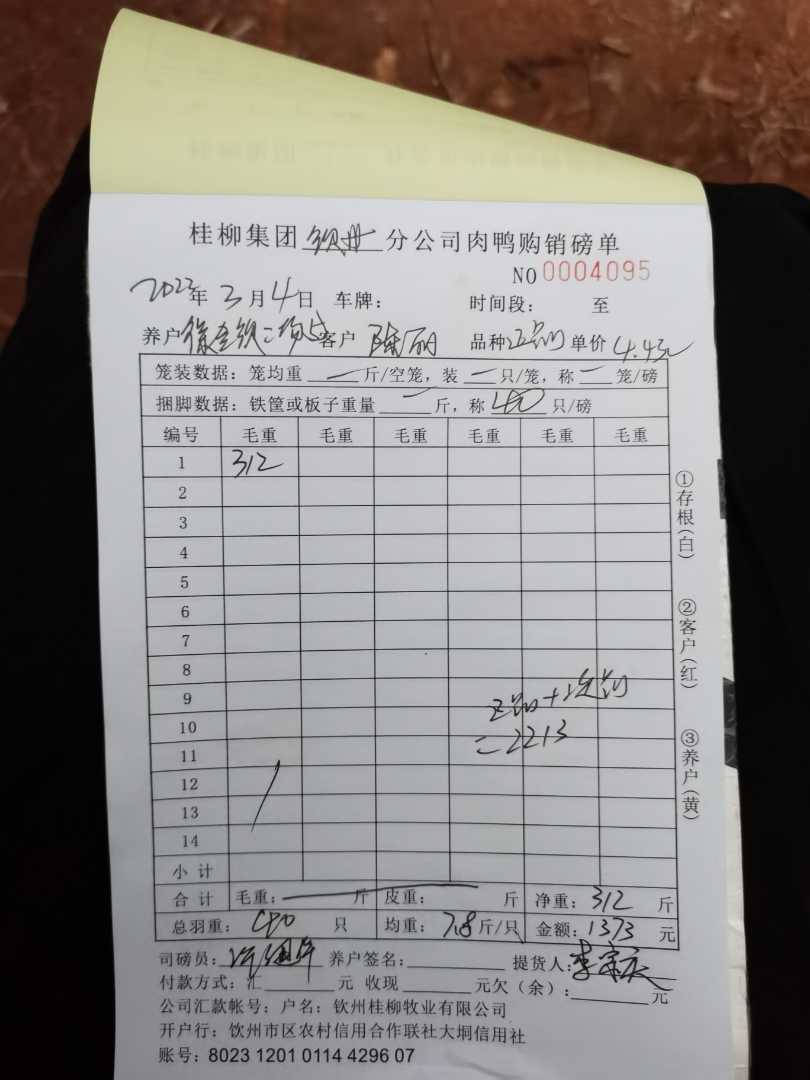 桂柳集团 钦州 分公司肉鸭购销磅单
NO 0004095
2023年 3月4日 车牌: 时间段: 至
养户 客户 陈丽 品种 正品 单价 4.4元
笼装数据: 笼均重 一 斤/空笼, 装 一 只/笼, 称 一 笼/磅
捆脚数据: 铁筐或板子重量 一 斤, 称 40 只/磅
编号 毛重 毛重 毛重 毛重 毛重 毛重
1 312
2
3
4
5
6
7
8
9
10
11
12
13
14
正品+次品
=2213
小计
合计 毛重: 斤 皮重: 斤 净重: 312 斤
总羽重: 40 只 均重: 7.8 斤/只 金额: 1373 元
司磅员: 养户签名: 提货人:
付款方式: 汇 元 收现 元欠(余): 元
公司汇款帐号: 户名: 钦州桂柳牧业有限公司
开户行: 钦州市区农村信用合作联社大垌信用社
账号: 8023 1201 0114 4296 07
①存根(白)
②客户(红)
③养户(黄)